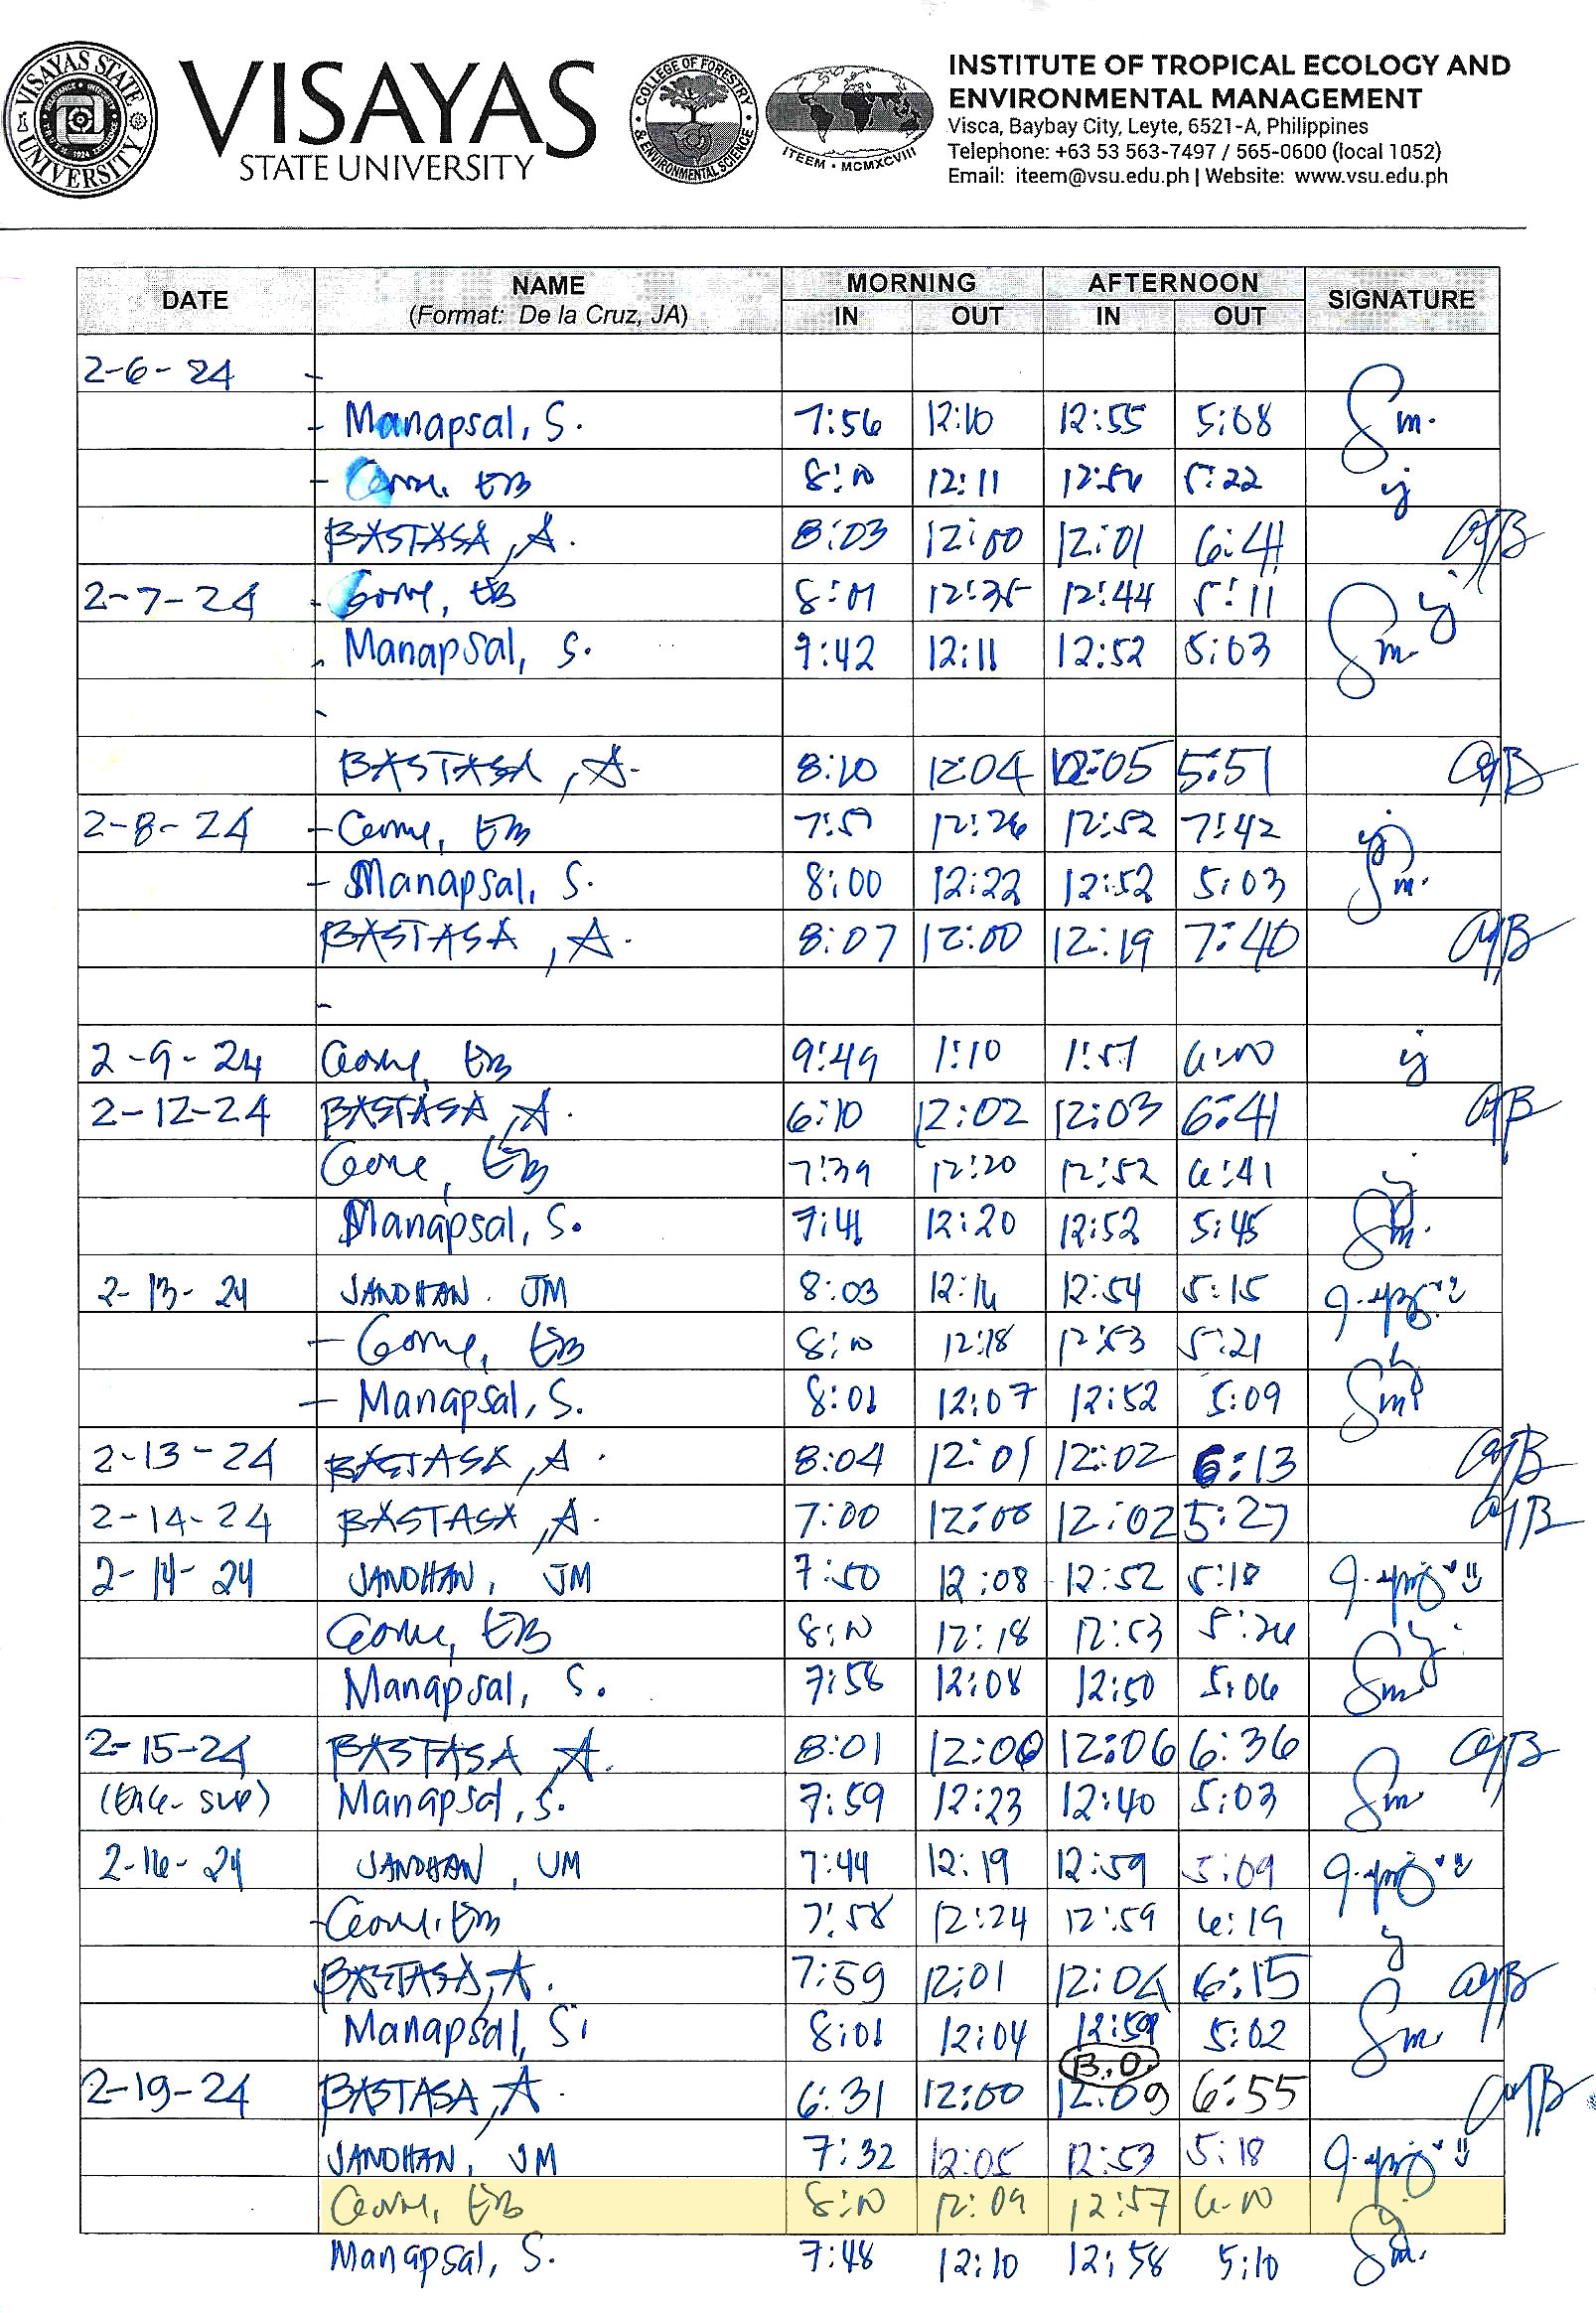 VISAYAS STATE UNIVERSITY
VISAYAS
STATE UNIVERSITY
COLLEGE OF FORESTRY & ENVIRONMENTAL SCIENCE
ITEEM • MCMXCVIII
INSTITUTE OF TROPICAL ECOLOGY AND
ENVIRONMENTAL MANAGEMENT
Visca, Baybay City, Leyte, 6521-A, Philippines
Telephone: +63 53 563-7497 / 565-0600 (local 1052)
Email: iteem@vsu.edu.ph | Website: www.vsu.edu.ph
DATE NAME MORNING AFTERNOON SIGNATURE
(Format: De la Cruz, JA) IN OUT IN OUT
2-6-24 -
- Manapsal, S. 7:56 12:10 12:55 5:08 Sm.
- EB 12:11 12:56 5:22
BASTASA, A. 8:03 12:00 12:01 6:41 AJB
2-7-24 - EB 12:35 12:44 5:11
Manapsal, S. 9:42 12:11 12:52 5:03 Sm.
-
BASTASA, A. 8:10 12:04 12:05 5:51 AJB
2-8-24 - EB 12:26 12:52 7:42
- Manapsal, S. 8:00 12:22 12:52 5:03 Sm.
BASTASA, A. 8:07 12:00 12:19 7:40 AJB
-
2-9-24 EB 9:49 1:10 1:57
2-12-24 BASTASA, A. 6:10 12:02 12:03 6:41 AJB
EB 7:39 12:20 12:52 6:41
Manapsal, S. 7:41 12:20 12:52 5:45 Sm.
2-13-24 JANDHAN, JM 8:03 12:16 12:54 5:15
- EB 12:18 12:53 5:21
- Manapsal, S. 8:01 12:07 12:52 5:09 Sm
2-13-24 BASTASA, A. 8:04 12:01 12:02 6:13 AJB
2-14-24 BASTASA, A. 7:00 12:00 12:02 5:27 AJB
2-14-24 JANDHAN, JM 7:50 12:08 12:52 5:18
EB 12:18 12:53 5:26
Manapsal, S. 7:58 12:08 12:50 5:06 Sm
2-15-24 BASTASA, A. 8:01 12:00 12:06 6:36 AJB
Manapsal, S. 7:59 12:23 12:40 5:03 Sm.
2-16-24 JANDHAN, JM 7:44 12:19 12:59 5:09
- EB 7:58 12:24 12:59 6:19
BASTASA, A. 7:59 12:01 12:04 6:15 AJB
Manapsal, S. 8:01 12:04 12:59 5:02 Sm.
B.O.
2-19-24 BASTASA, A. 6:31 12:00 12:09 6:55 AJB
JANDHAN, JM 7:32 12:05 12:53 5:18
EB 12:09 12:57
Manapsal, S. 7:48 12:10 12:58 5:10 Sm.